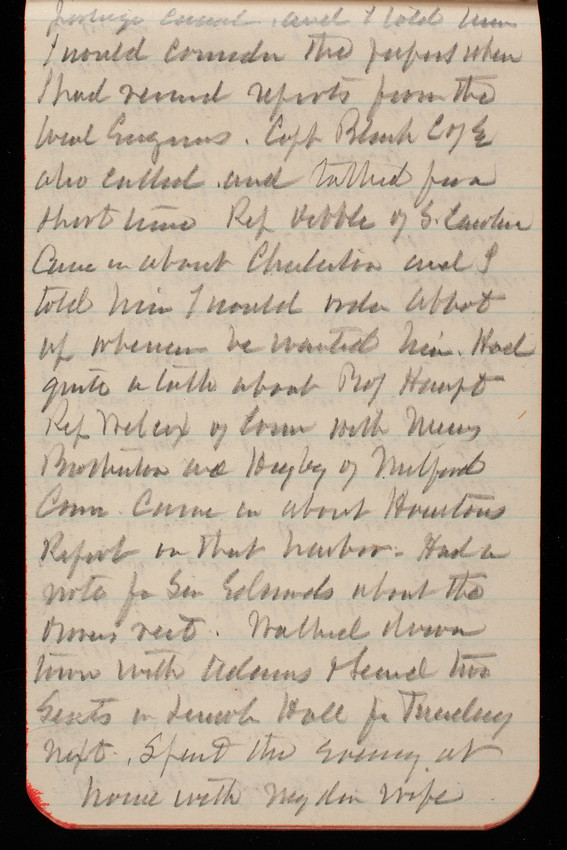 Portage Canal, and I told him
I would consider the papers when
I had received reports from the
local Engineers. Capt Black C of E
also called and talked for a
short time Rep Dibble of S. Carolina
Came in about Charleston and I
told him I would order Abbot
up whenever he wanted him. Had
quite a talk about Prof Haupt
Rep Wilcox of Conn with Messrs
Brotherton and Hugby of Milford
Conn. Came in about Houstons
Report on that harbor. Had a
note fr Gen Edmunds about the
rest. Walked down
town with Adams & Secured two
Seats in Lincoln Hall for Tuesday
next. Spent the Evening at
home with my dear wife